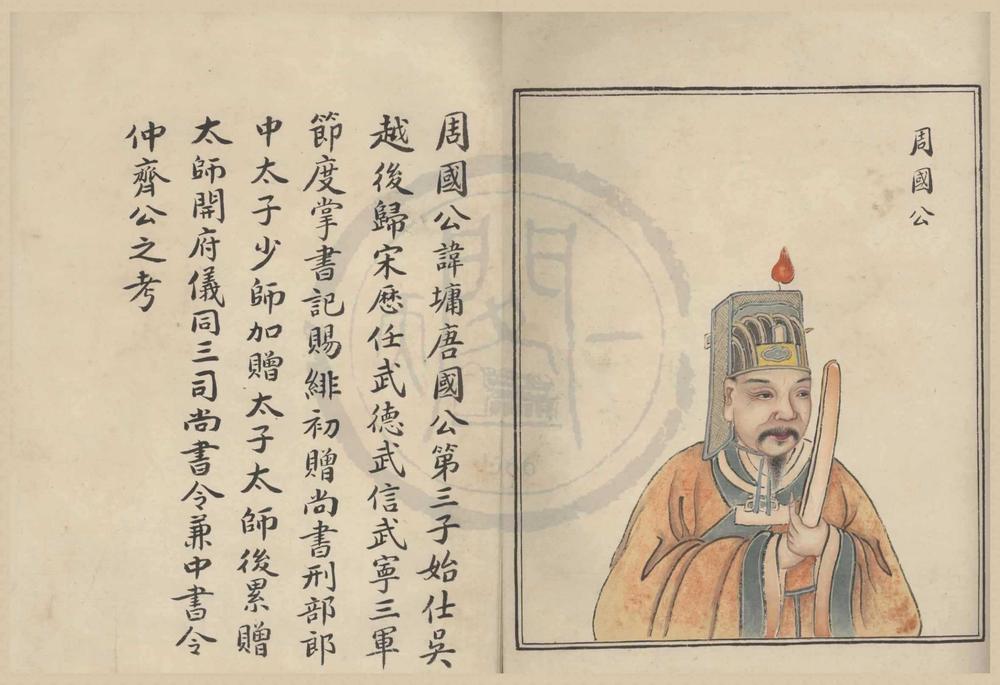 周國公
周國公諱墉唐國公第三子始仕吳
越後歸宋歷任武德武信武寧三軍
節度掌書記賜緋初贈尚書刑部郎
中太子少師加贈太子太師後累贈
太師開府儀同三司尚書令兼中書令
仲齊公之考